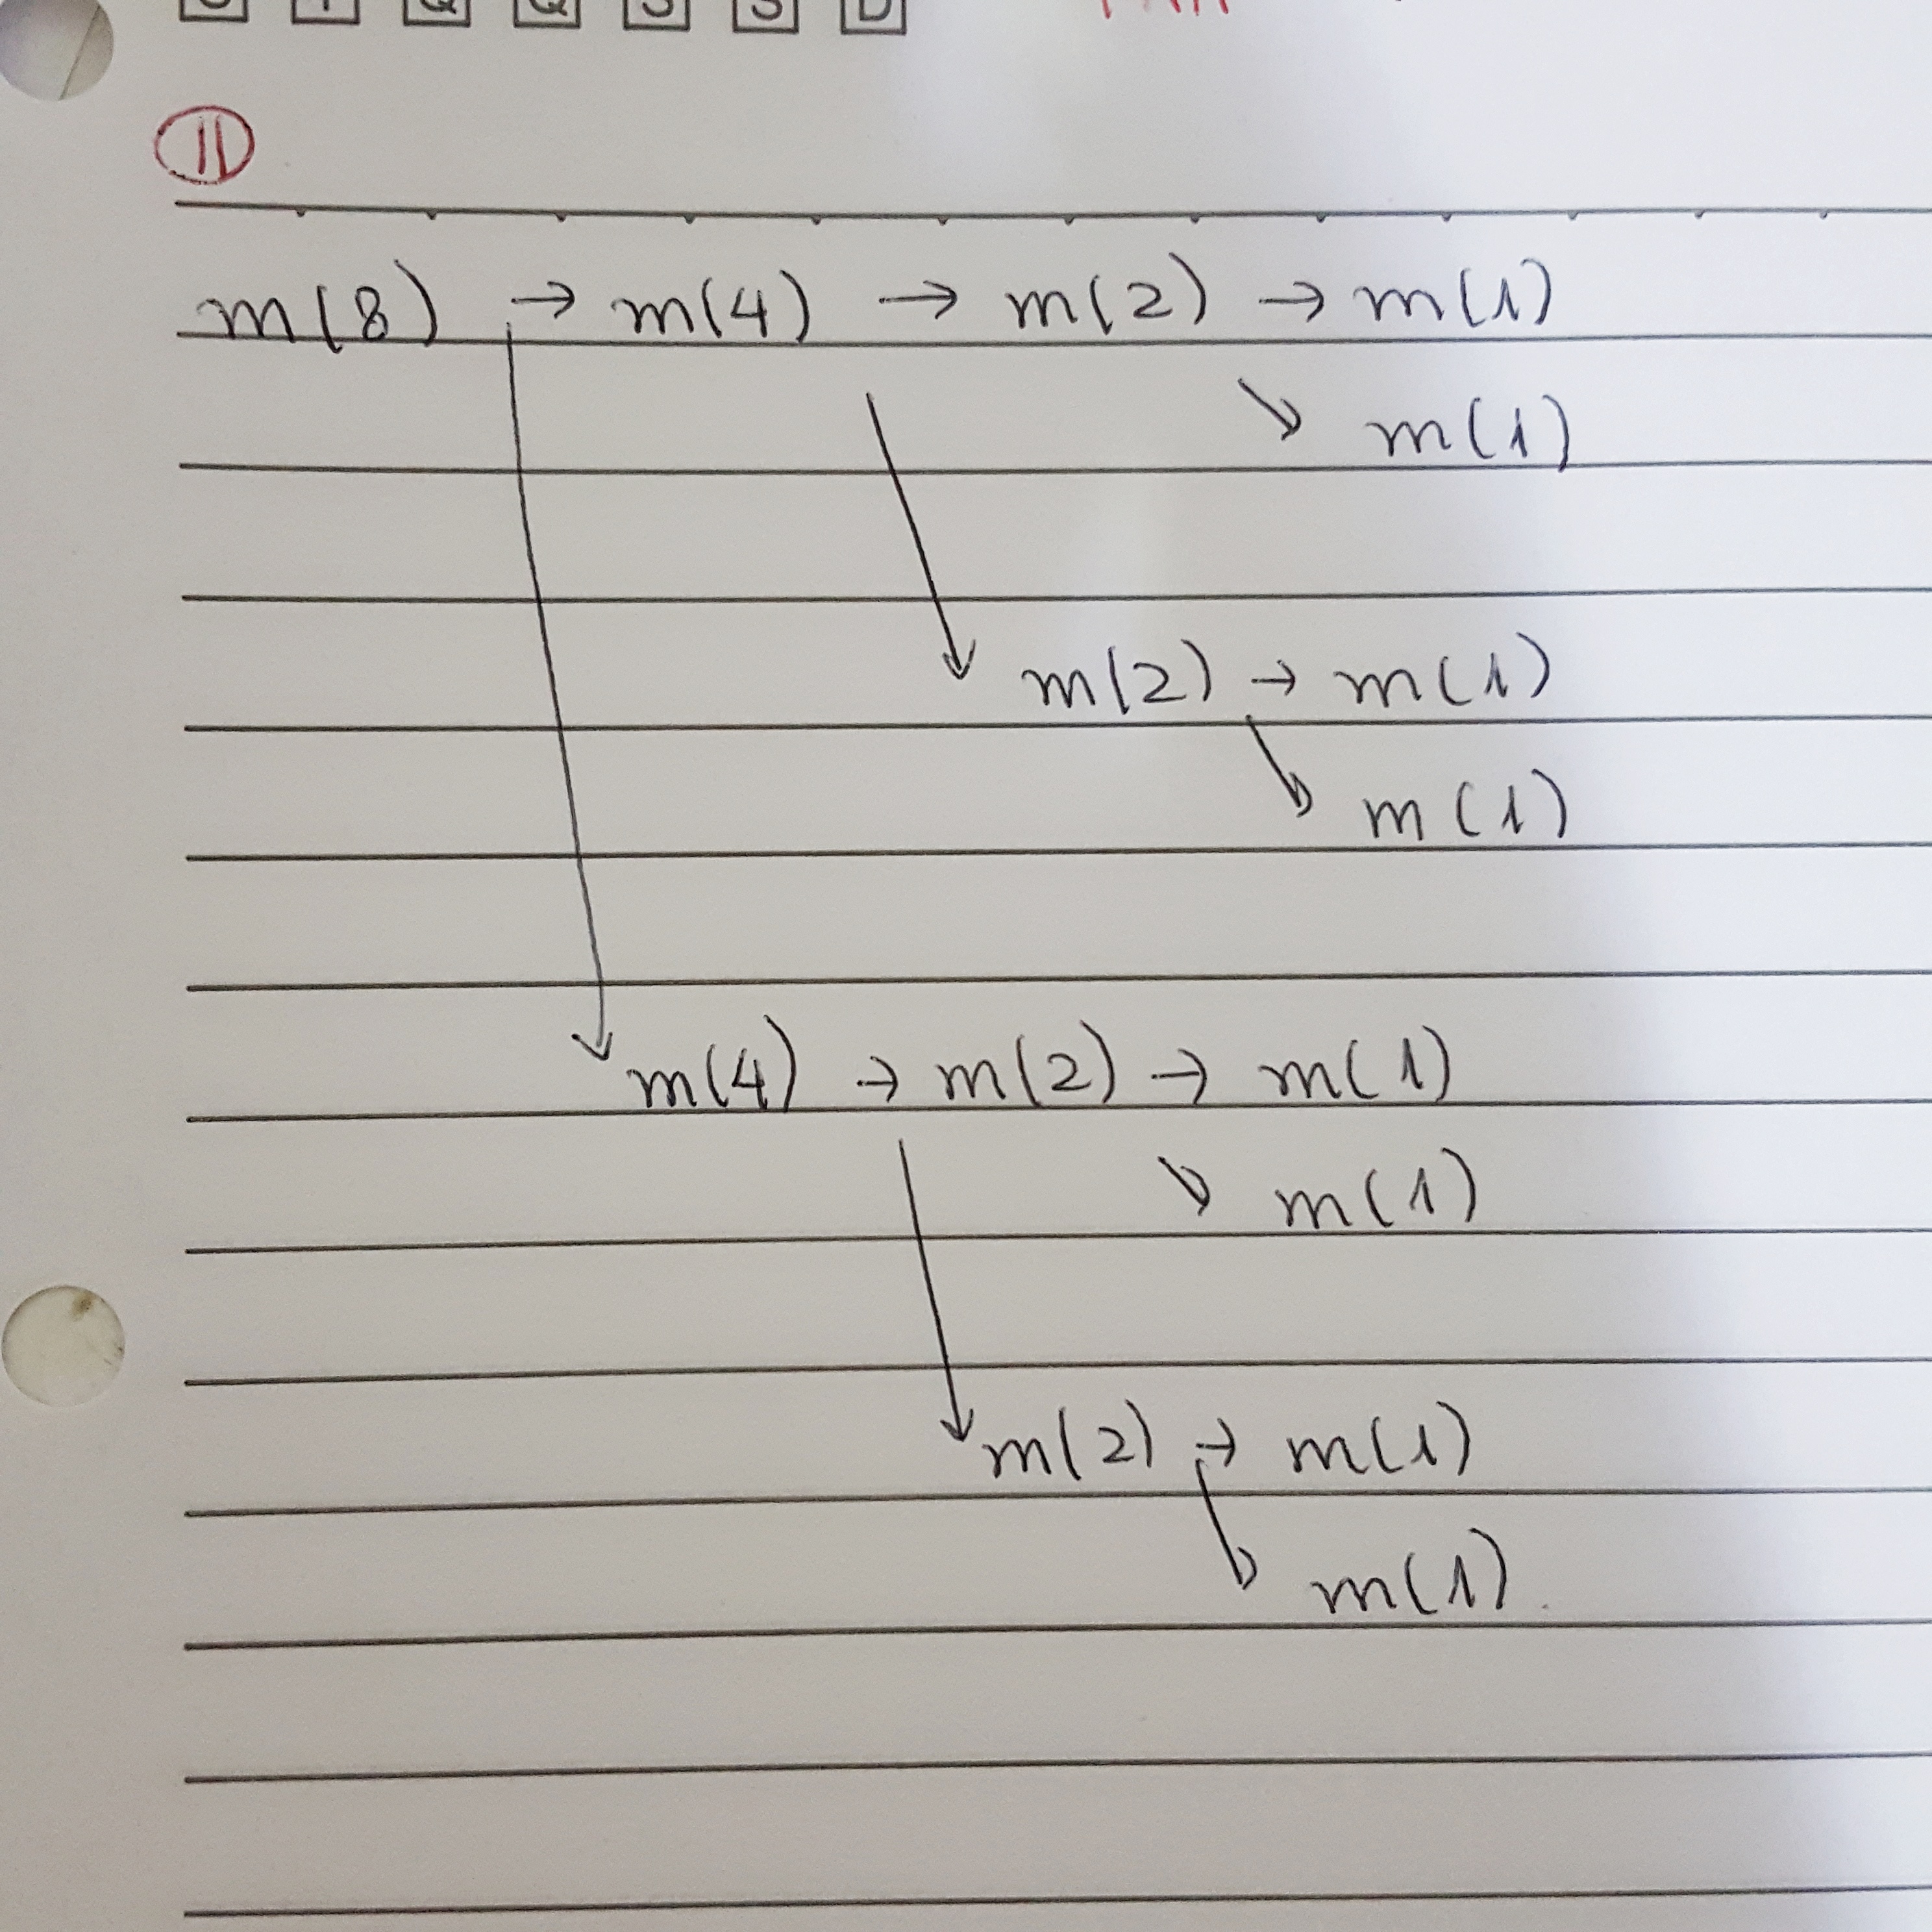 ⑪
m(8) → m(4) → m(2) → m(1)
↘ m(1)
↘ m(2) → m(1)
↘ m(1)
↓ m(4) → m(2) → m(1)
↘ m(1)
↘ m(2) → m(1)
↘ m(1)